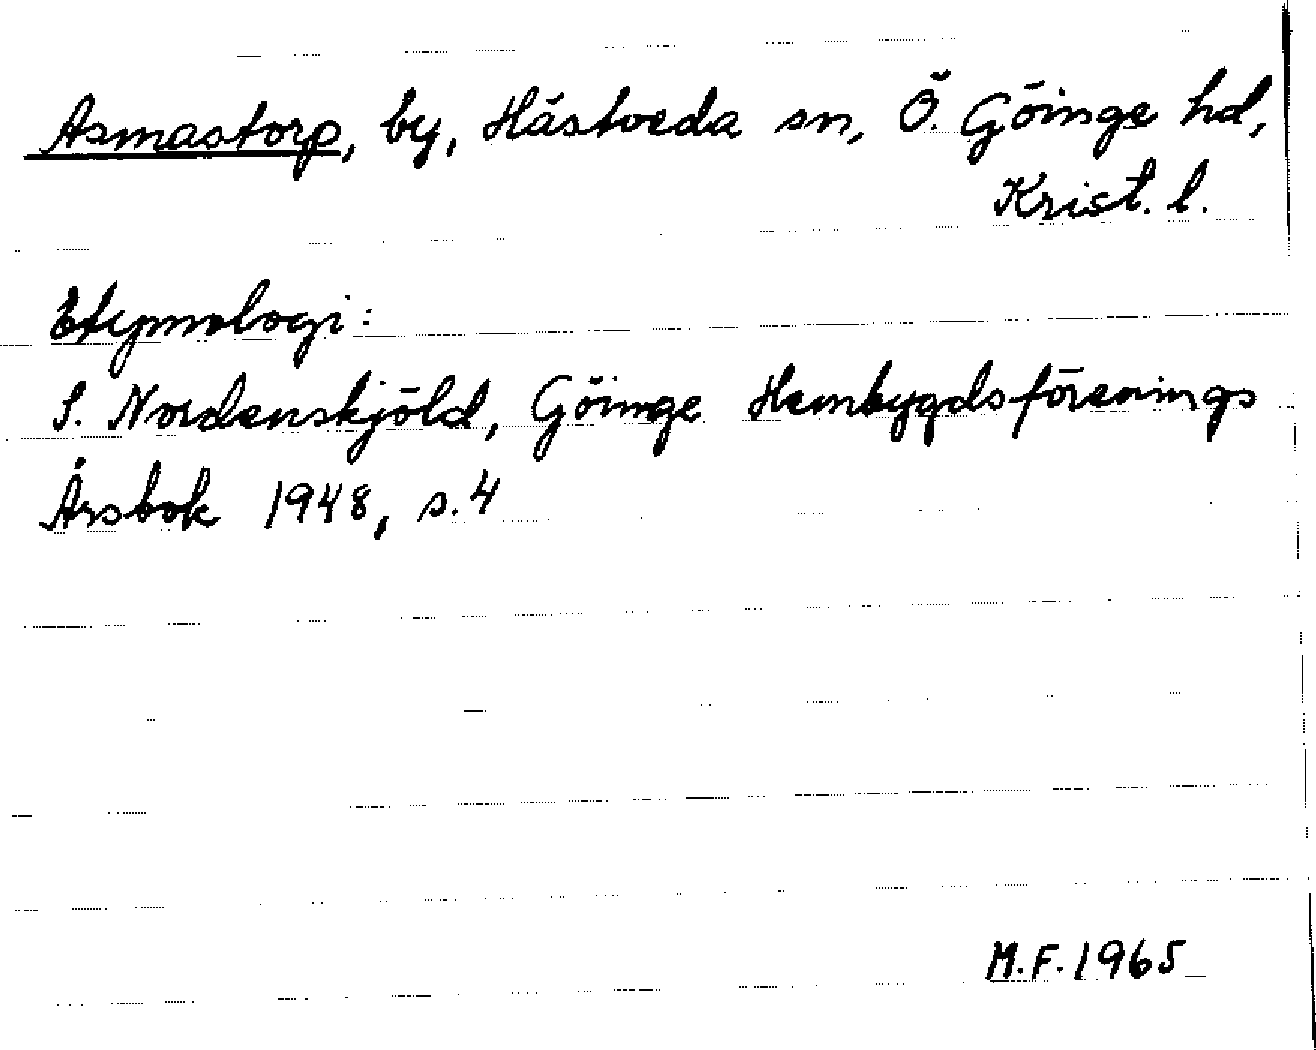 Asmastorp, by, Hästveda sn, Ö. Göinge hd,
Krist. l.
Etymologi:
S. Nordenskjöld, Göinge Hembygdsförenings
Årsbok 1948, s. 4
M.F. 1965